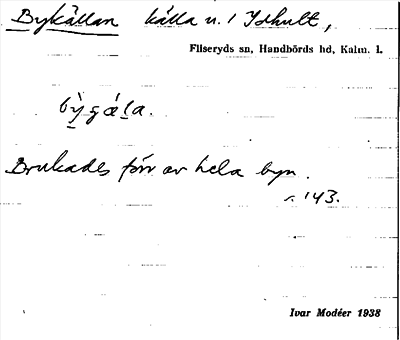 Bykällan källa u. 1 Ishult,
Fliseryds sn, Handbörds hd, Kalm. l.
bỳgǽla.
Brukades förr av hela byn.
s. 143.
Ivar Modéer 1938